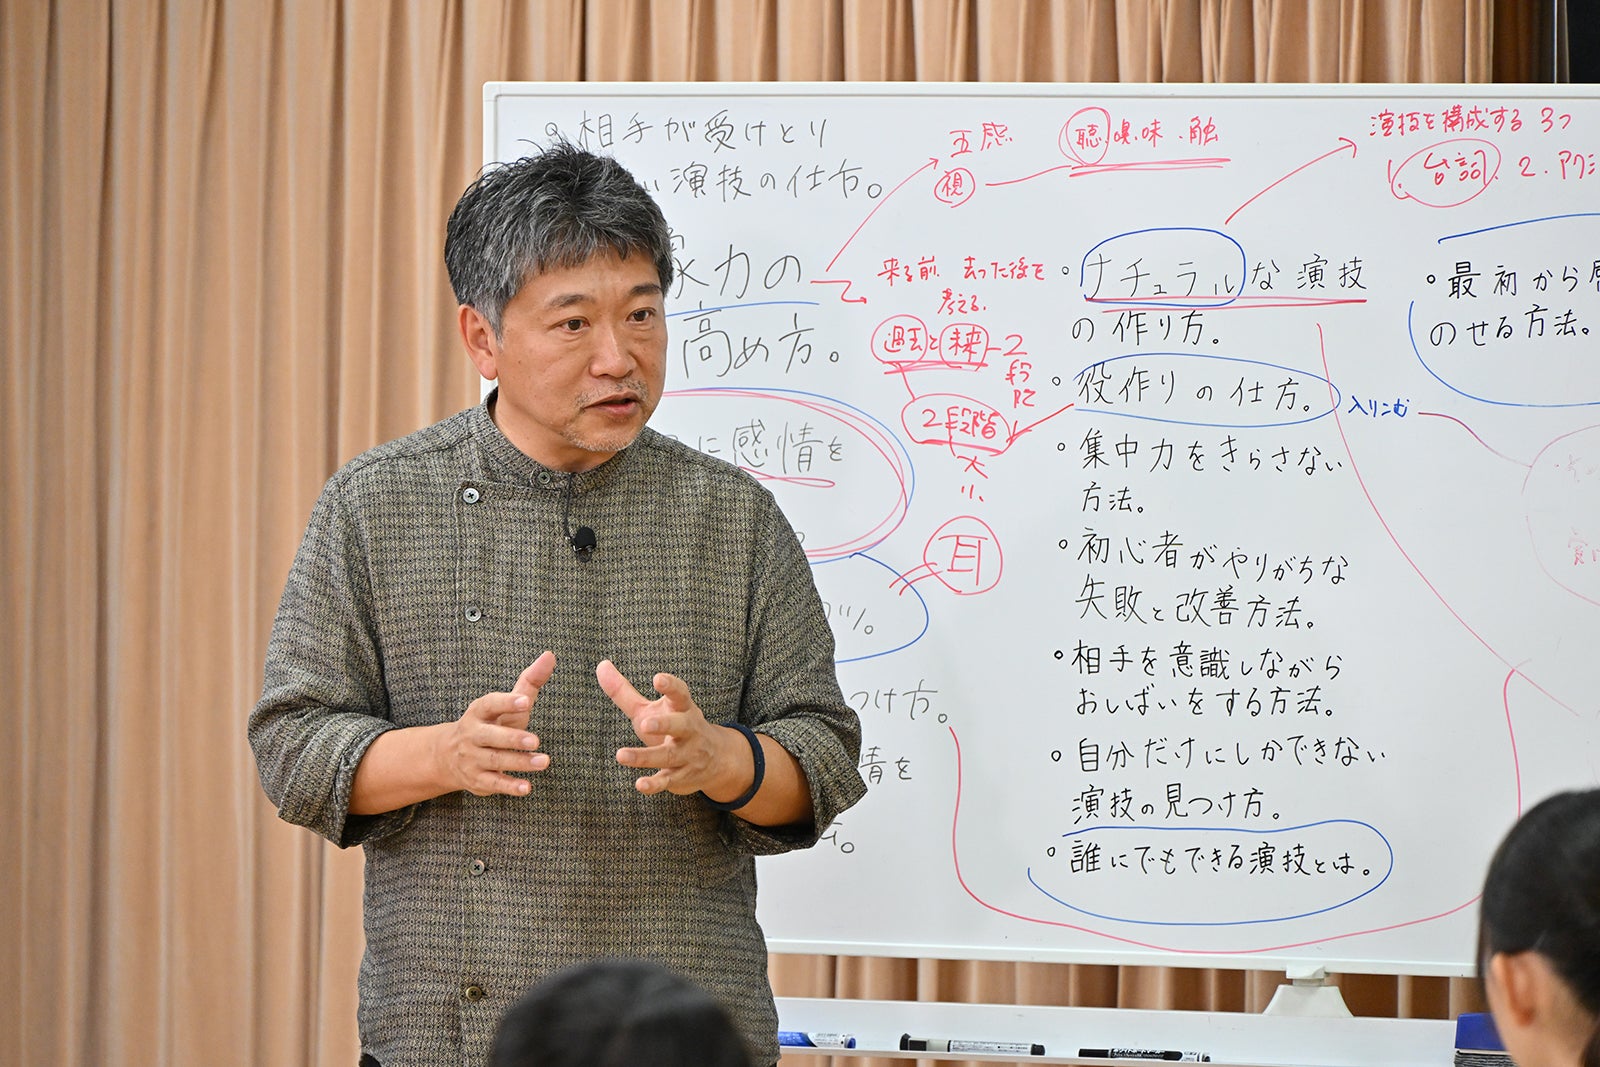 相手が受けとり
い演技の仕方。
力の
高め方。
に感情を
つけ方。
情を
五感
視
聴.嗅.味.触
来る前 去った後を
考える.
過去と未来-2
段階
2段階
大
小
耳
演技を構成する 3つ
1. 台詞. 2. アクシ
・ナチュラルな演技
の作り方。
・役作りの仕方。
入りこむ
・集中力をきらさない
方法。
・初心者がやりがちな
失敗と改善方法。
・相手を意識しながら
おしばいをする方法。
・自分だけにしかできない
演技の見つけ方。
・誰にでもできる演技とは。
・最初から
のせる方法。